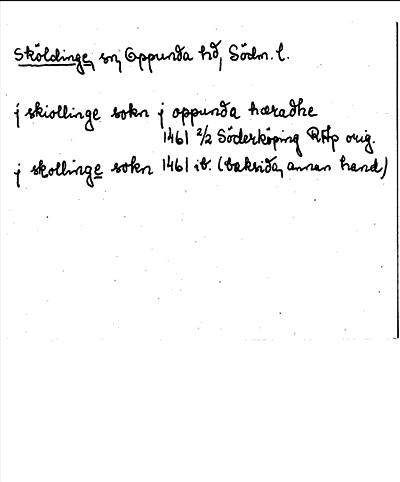 Sköldinge, sn, Oppunda hd, Södm. l.
j skiollinge sokn j oppunda hæradhe
1461 2/2 Söderköping RAp orig.
j skollinge sokn 1461 ib. (baksida, annan hand)